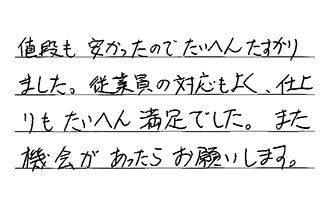 値段も安かったのでたいへんたすかり
ました。従業員の対応もよく、仕上
りもたいへん満足でした。また
機会があったらお願いします。